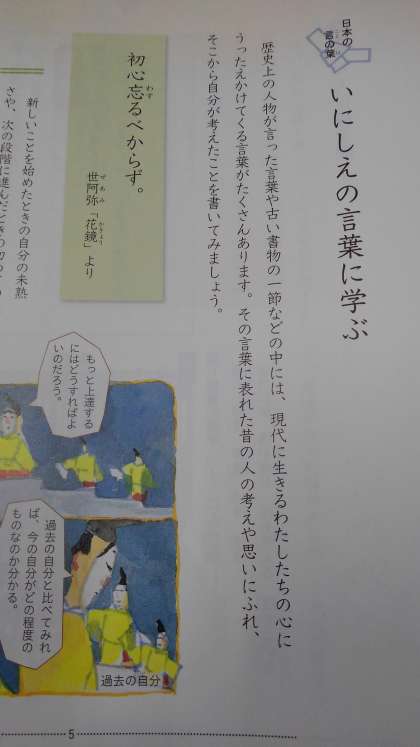 日本の
言の葉
いにしえの言葉に学ぶ
歴史上の人物が言った言葉や古い書物の一節などの中には、現代に生きるわたしたちの心に
うったえかけてくる言葉がたくさんあります。その言葉に表れた昔の人の考えや思いにふれ、
そこから自分が考えたことを書いてみましょう。
初心忘るべからず。
わす
世阿弥「花鏡」より
ぜあみ
かきょう
新しいことを始めたときの自分の未熟
さや、次の段階に進んだときの初めての
もっと上達する
にはどうすればよ
いのだろう。
過去の自分と比べてみれ
ば、今の自分がどの程度の
ものなのか分かる。
過去の自分
5